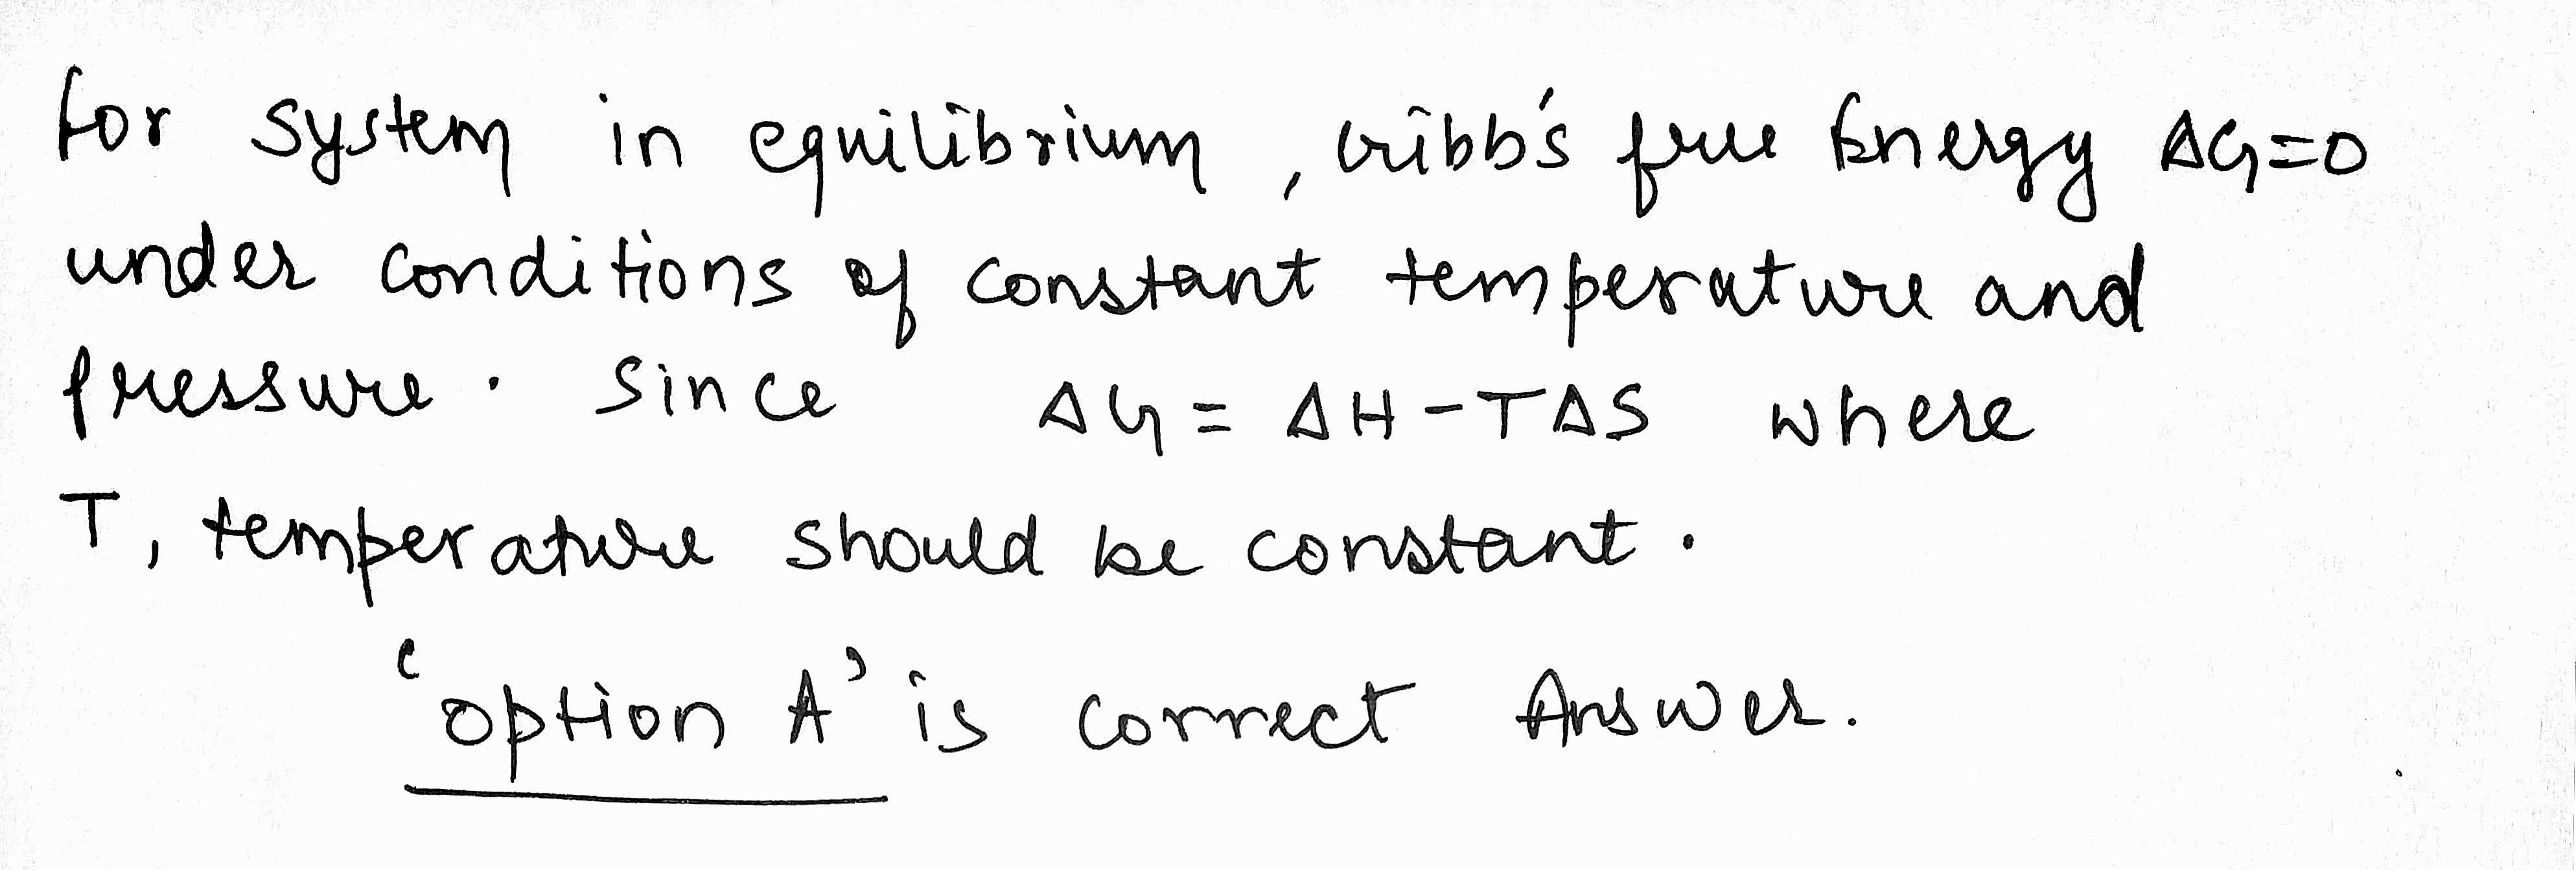 for system in equilibrium, Gibb's free Energy ΔG=0
under conditions of constant temperature and
pressure. Since ΔG = ΔH-TΔS where
T, temperature should be constant.
'option A' is correct Answer.